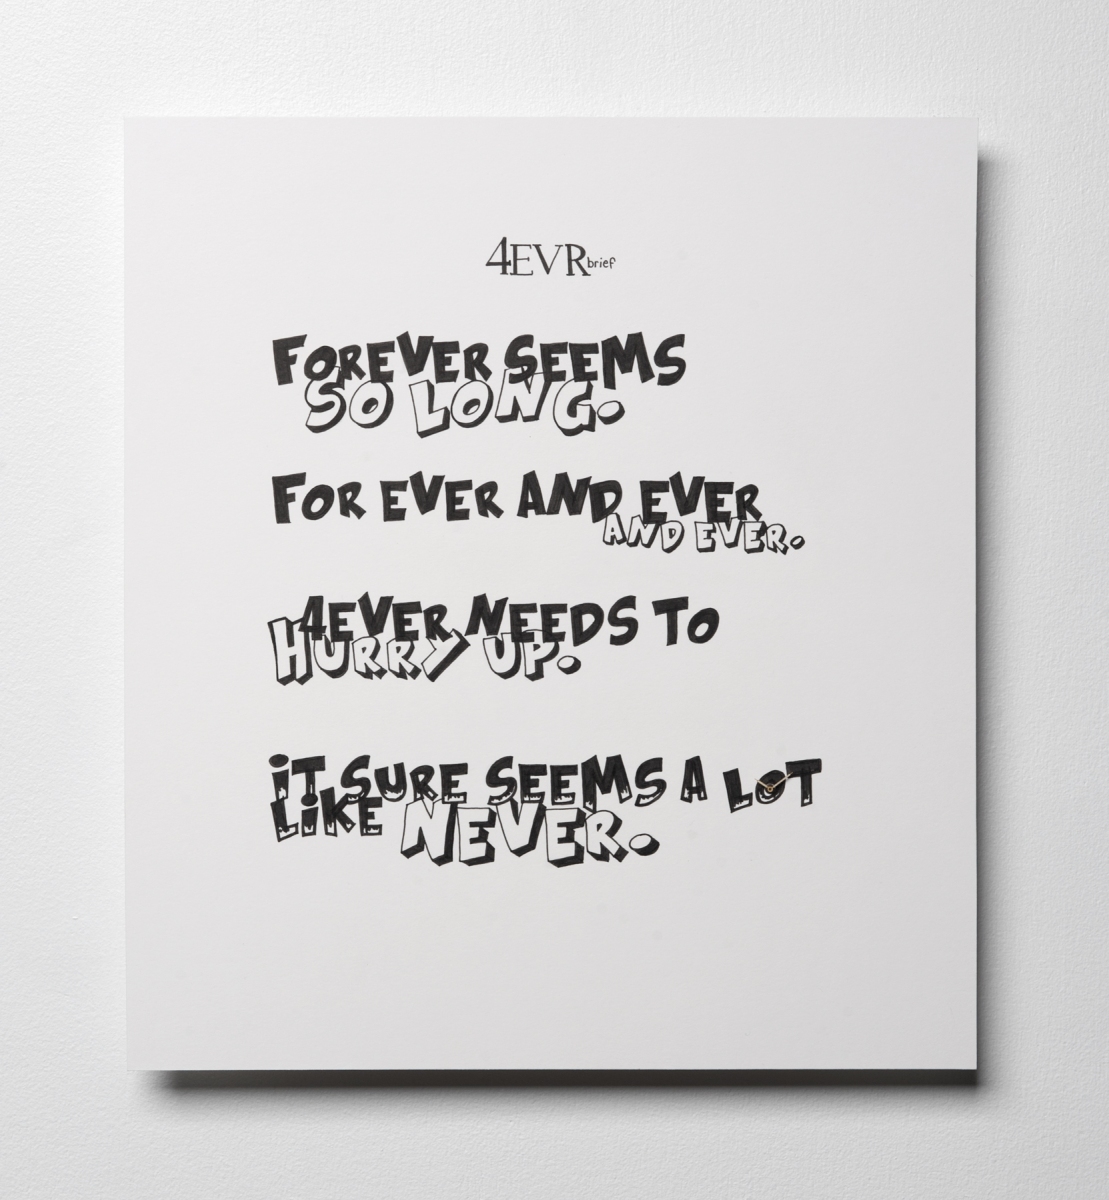 4EVR brief
FOREVER SEEMS
SO LONG.
FOR EVER AND EVER
AND EVER.
4EVER NEEDS TO
HURRY UP.
iT SURE SEEMS A LOT
LiKE NEVER.